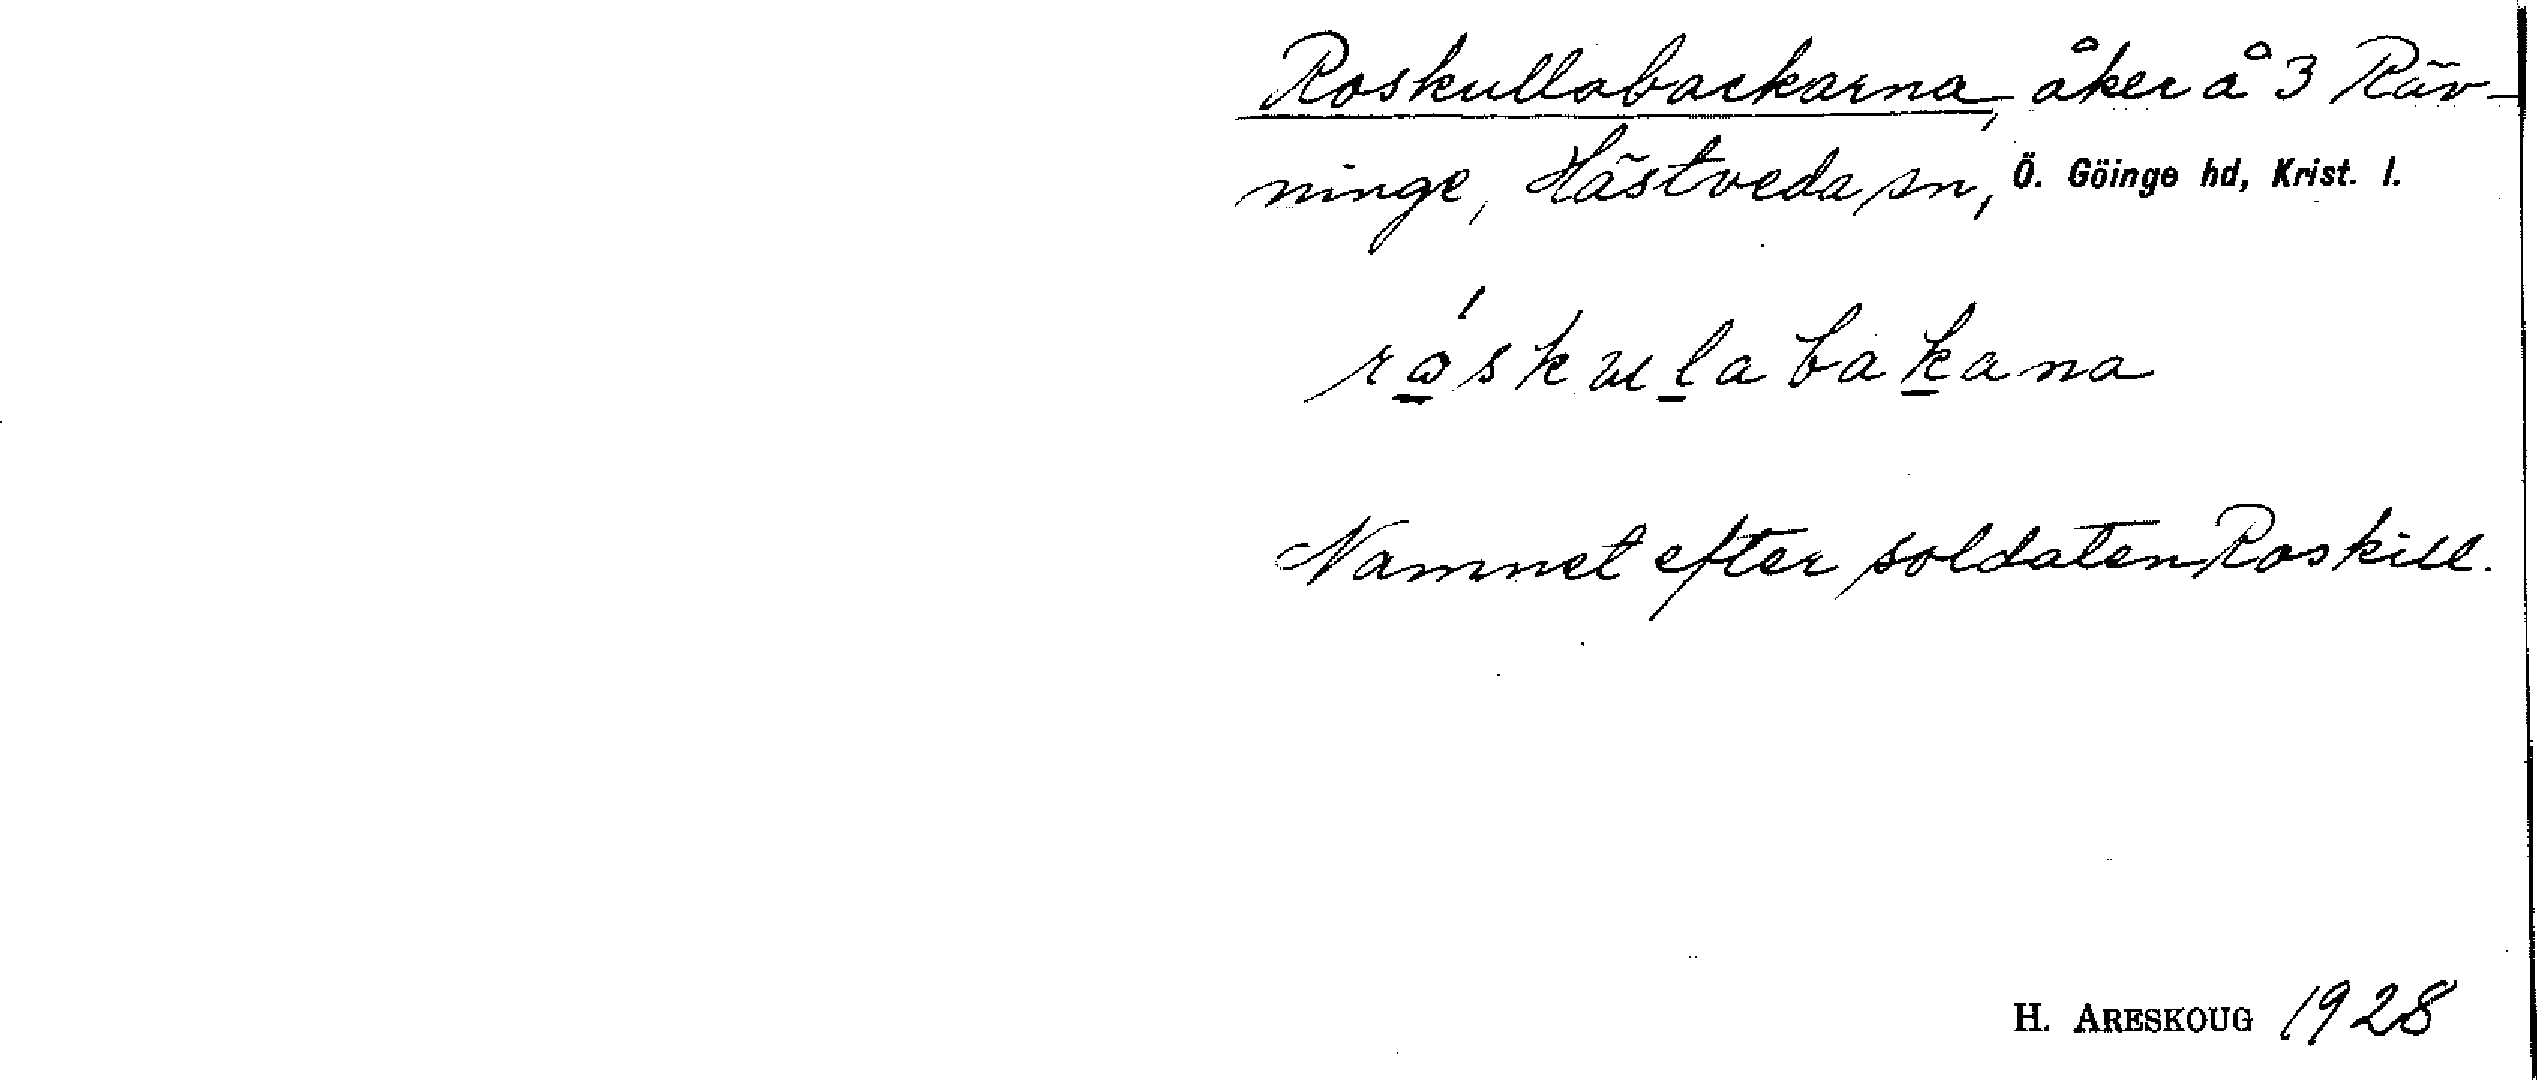 Roskullabackarna, åker å 3 Räv-
ninge, Hästveda sn, Ö. Göinge hd, Krist. l.
råskulabakana
Namnet efter soldaten Roskill.
H. ARESKOUG 1928